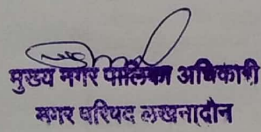 मुख्य नगर पालिका अधिकारी
नगर परिषद लखनादौन